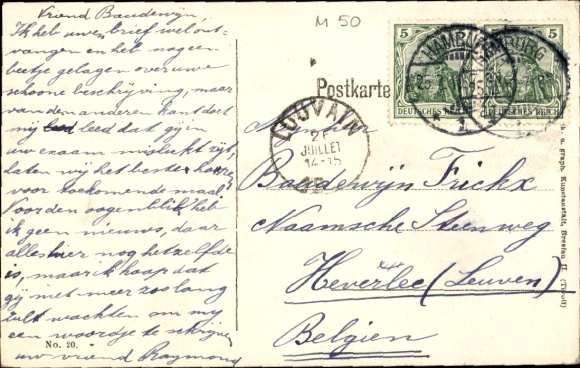 Vriend Baudewijn,
Ik heb uwe brief wel ont-
vangen en heb nog een
beetje gelagen over uwe
schoone beschrijving, maar
van den anderen kant doet
mij leed dat gij in
uw exaam mislukt zijt,
laten wij het beste hopen
voor toekomende maal.
Voor den oogenblik heb
ik geen nieuws, daar
alles hier nog hetzelfde
is, maar ik hoop dat
gij niet meer zoo lang
zult wachten om mij
een woordje te schrijven
uw vriend Raymond
No. 20.
M 50
Postkarte
5 5
HAMBURG HAMBURG
DEUTSCHES REICH DEUTSCHES REICH
LOUVAIN
JUILLET
14-15
Baudewijn Frickx
Naamsche Steenweg
Heverlee (Leuven)
Belgien
u. graph. Kunstanstalt, Breslau II.